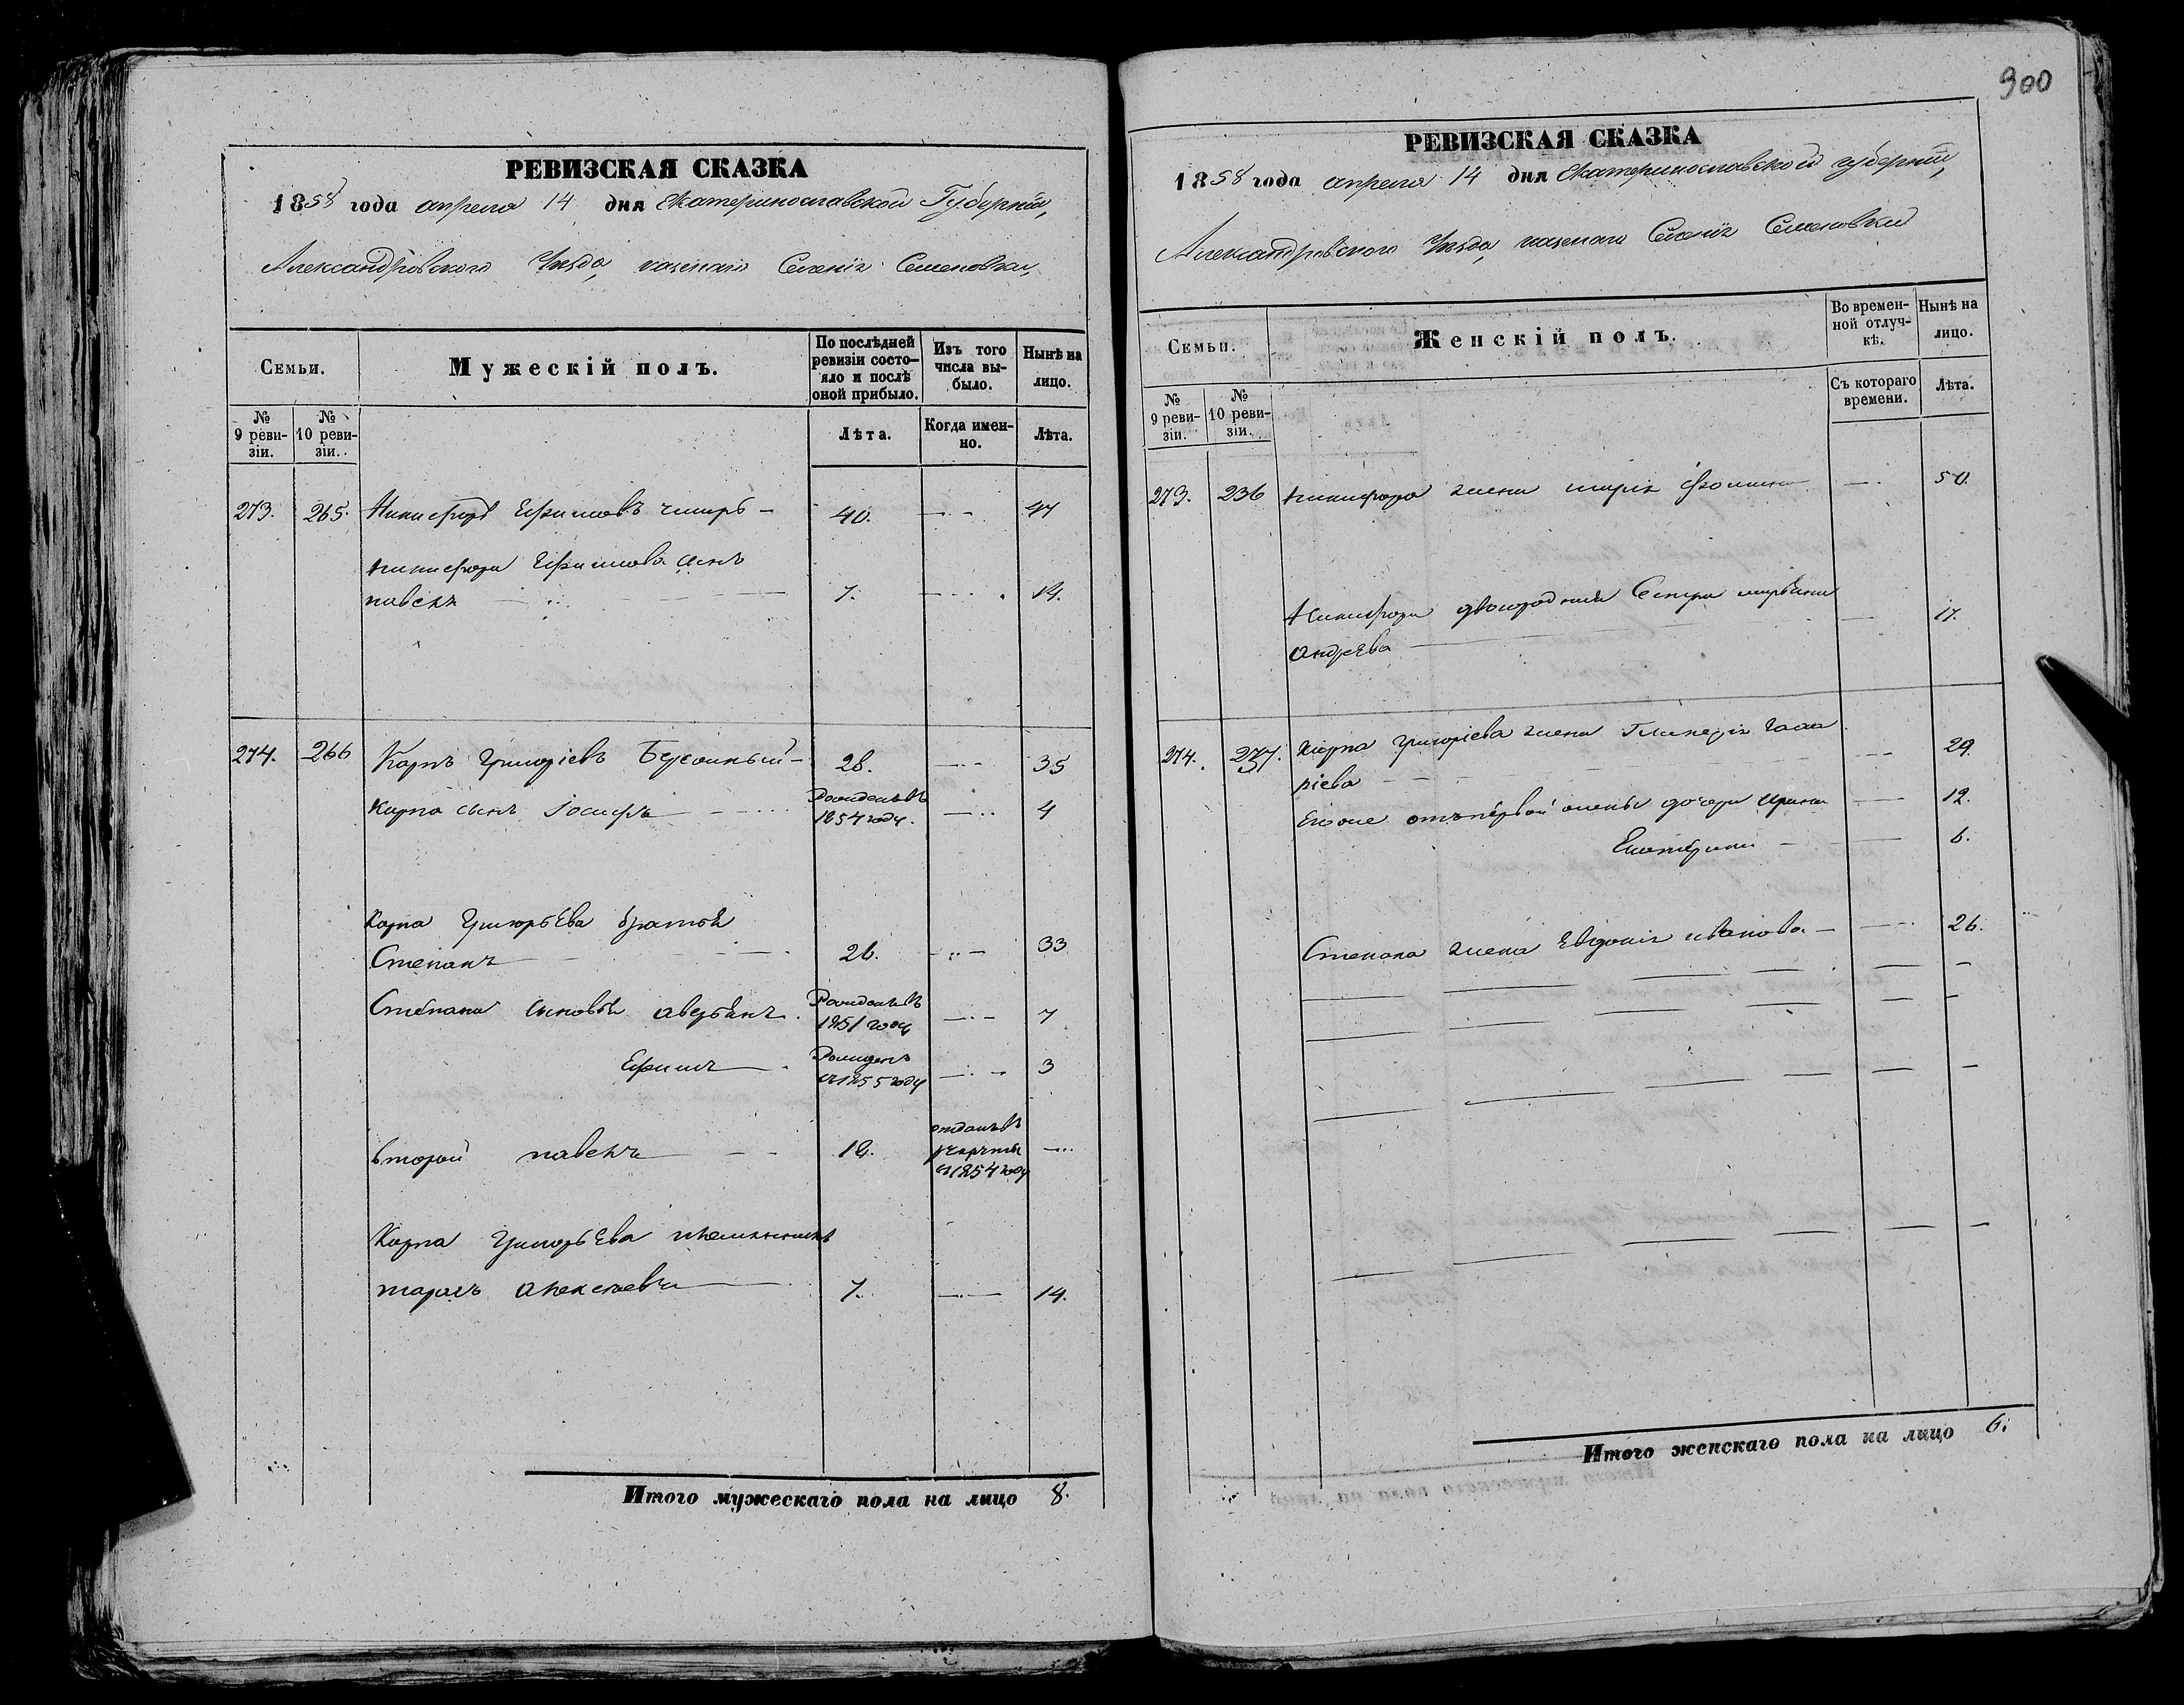 РЕВИЗСКАЯ СКАЗКА
1858 года апреля 14 дня Екатеринославской Губерніи,
Александровского Уезда, казенаго Селенія Семеновки,
Семьи.
Мужескій полъ.
По послѣдней ревизіи состояло и послѣ оной прибыло.
Изъ того числа выбыло.
Нынѣ на лицо.
№ 9 ревизіи.
№ 10 ревизіи.
Лѣта.
Когда именно.
Лѣта.
273. 265. Никифоръ Ефимовъ 40. 47
Никифора Ефимова сынъ
павелъ 7. 14.
274. 266 Карпъ Григоріевъ 28. 35
Карпа сынъ Іосифъ рожденъ въ 1854 году. 4
Карпа Григорьева братья
Степанъ 26. 33
Степана сыновья аверьянъ рожденъ въ 1851 году 7
Ефимъ рожденъ въ 1855 году 3
второй павелъ 12. отданъ въ рекруты въ 1854 году
Карпа Григорьева племянникъ
тарасъ алексеевъ 7. 14.
Итого мужескаго пола на лицо 8.
900
РЕВИЗСКАЯ СКАЗКА
1858 года апреля 14 дня Екатеринославской губерніи,
Александровского Уезда, казенаго Селенія Семеновки
Семьи.
Женскій полъ.
Во временной отлучкѣ.
Нынѣ на лицо.
№ 9 ревизіи.
№ 10 ревизіи.
Съ котораго времени.
Лѣта.
273. 236 Никифора жена марія фомина 50.
Никифора двоюродная Сестра
андреева 17.
274. 237. Карпа григоріева жена
ріева 29.
Егоже отъ первой жены дочери ирина 12.
Екатерина 6.
Степана жена Евдокія иванова 26.
Итого женскаго пола на лицо 6.